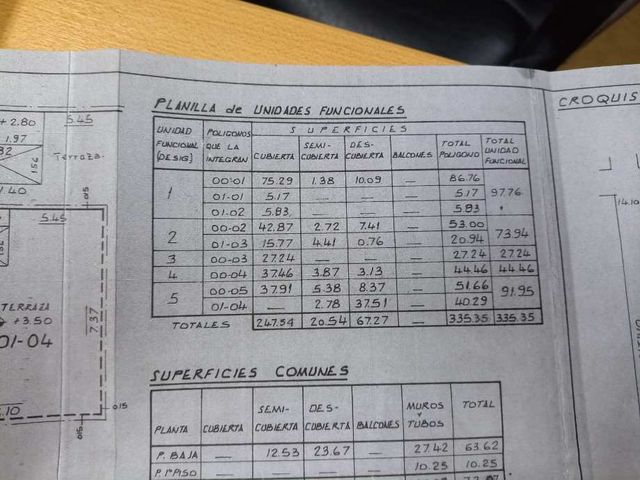 PLANILLA de UNIDADES FUNCIONALES
CROQUIS
UNIDAD FUNCIONAL (DESIG) POLIGONOS QUE LA INTEGRAN SUPERFICIES TOTAL POLIGONO TOTAL UNIDAD FUNCIONAL
CUBIERTA SEMI-CUBIERTA DES-CUBIERTA BALCONES
1 00-01 75.29 1.38 10.09 — 86.76 97.76
01-01 5.17 — — — 5.17
01-02 5.83 — — — 5.83
2 00-02 42.87 2.72 7.41 — 53.00 73.94
01-03 15.77 4.41 0.76 — 20.94
3 00-03 27.24 — — — 27.24 27.24
4 00-04 37.46 3.87 3.13 — 44.46 44.46
5 00-05 37.91 5.38 8.37 — 51.66 91.95
01-04 — 2.78 37.51 — 40.29
TOTALES 247.54 20.54 67.27 — 335.35 335.35
SUPERFICIES COMUNES
PLANTA CUBIERTA SEMI-CUBIERTA DES-CUBIERTA BALCONES MUROS Y TUBOS TOTAL
P. BAJA — 12.53 23.67 — 27.42 63.62
P. 1º PISO — — — — 10.25 10.25
+ 2.80
5.45
1.97
1.56
Terraza
1.40
015
5.45
TERRAZA
+3.50
01-04
7.37
.10
015
015
14.10